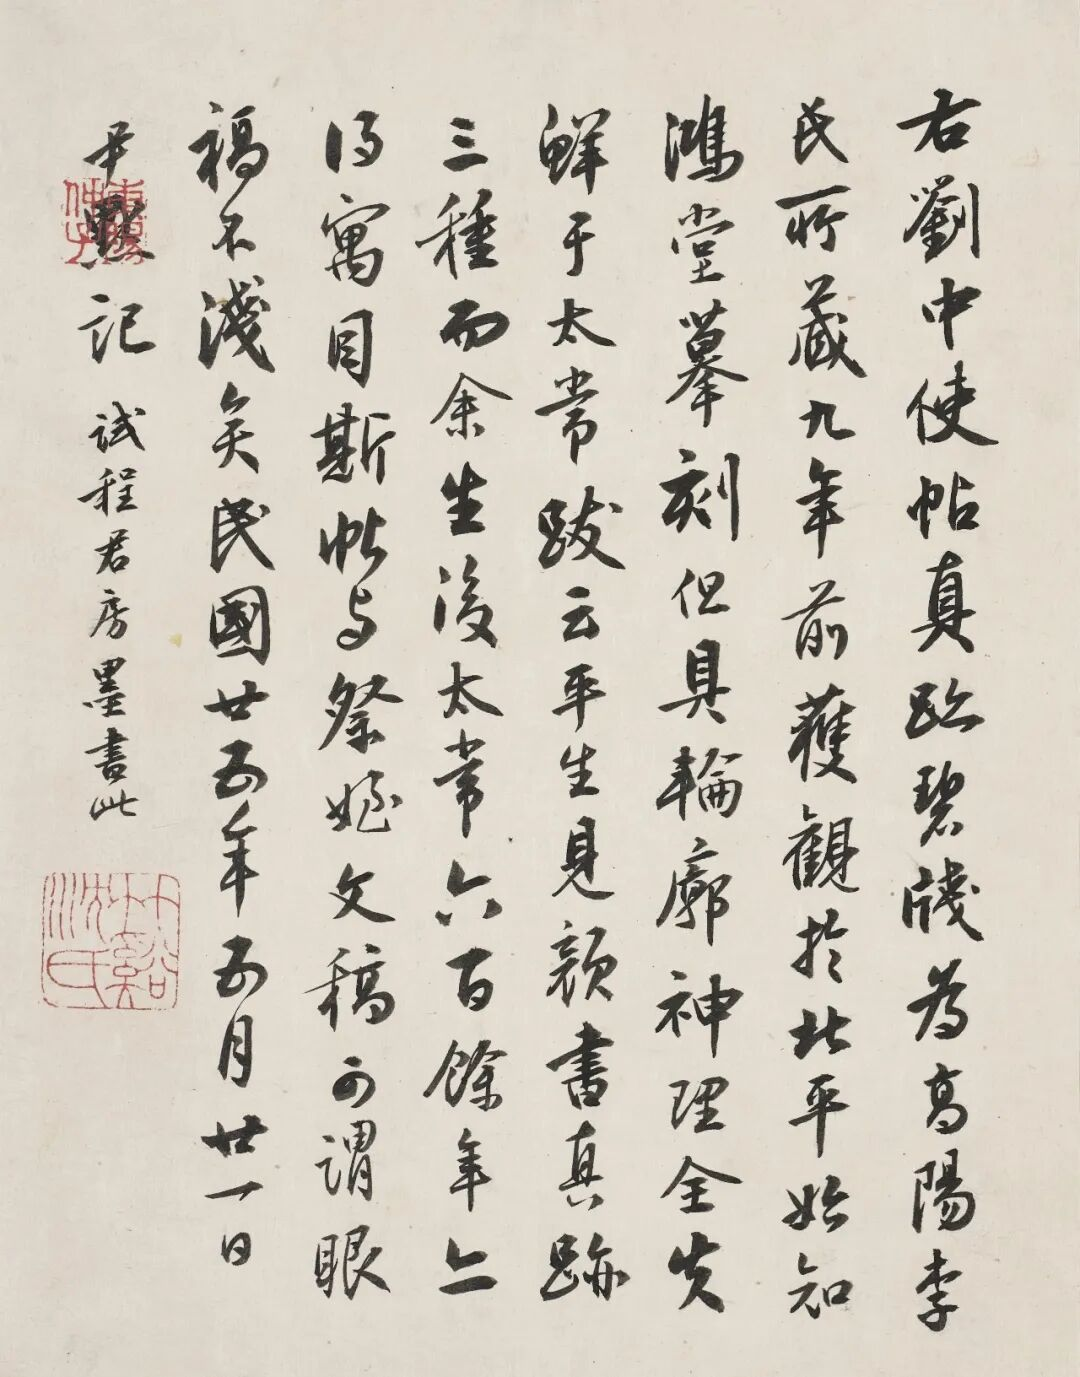 右劉中使帖真跡碧牋為高陽李
氏所藏九年前獲觀於北平始知
鴻堂摹刻但具輪廓神理全失
鮮于太常跋云平生見顏書真跡
三種而余生後太常六百餘年亦
得寓目斯帖与祭姪文稿可謂眼
福不淺矣民國廿五年五月廿一日
尹默記 試程君房墨書此
竹谿沈氏